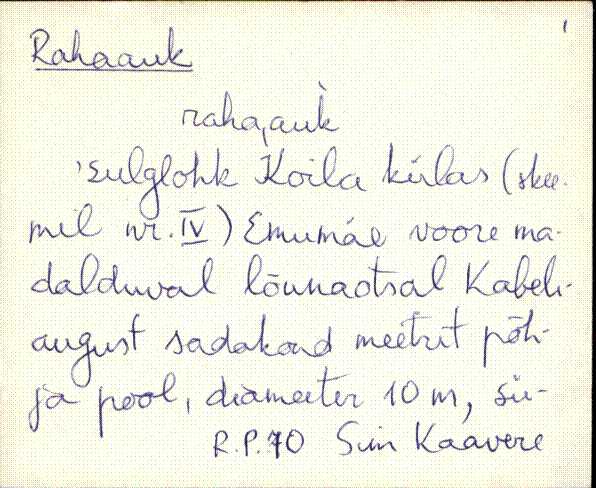 1
Rahaauk
raha,auk̀
'sulglohk Koila külas (skee-
mil nr. IV) Emumäe voore ma-
dalduval lõunaotsal Kabeli-
august sadakond meetrit põh-
ja pool, diameeter 10 m, sü-
R.P.70 Simm Kaavere